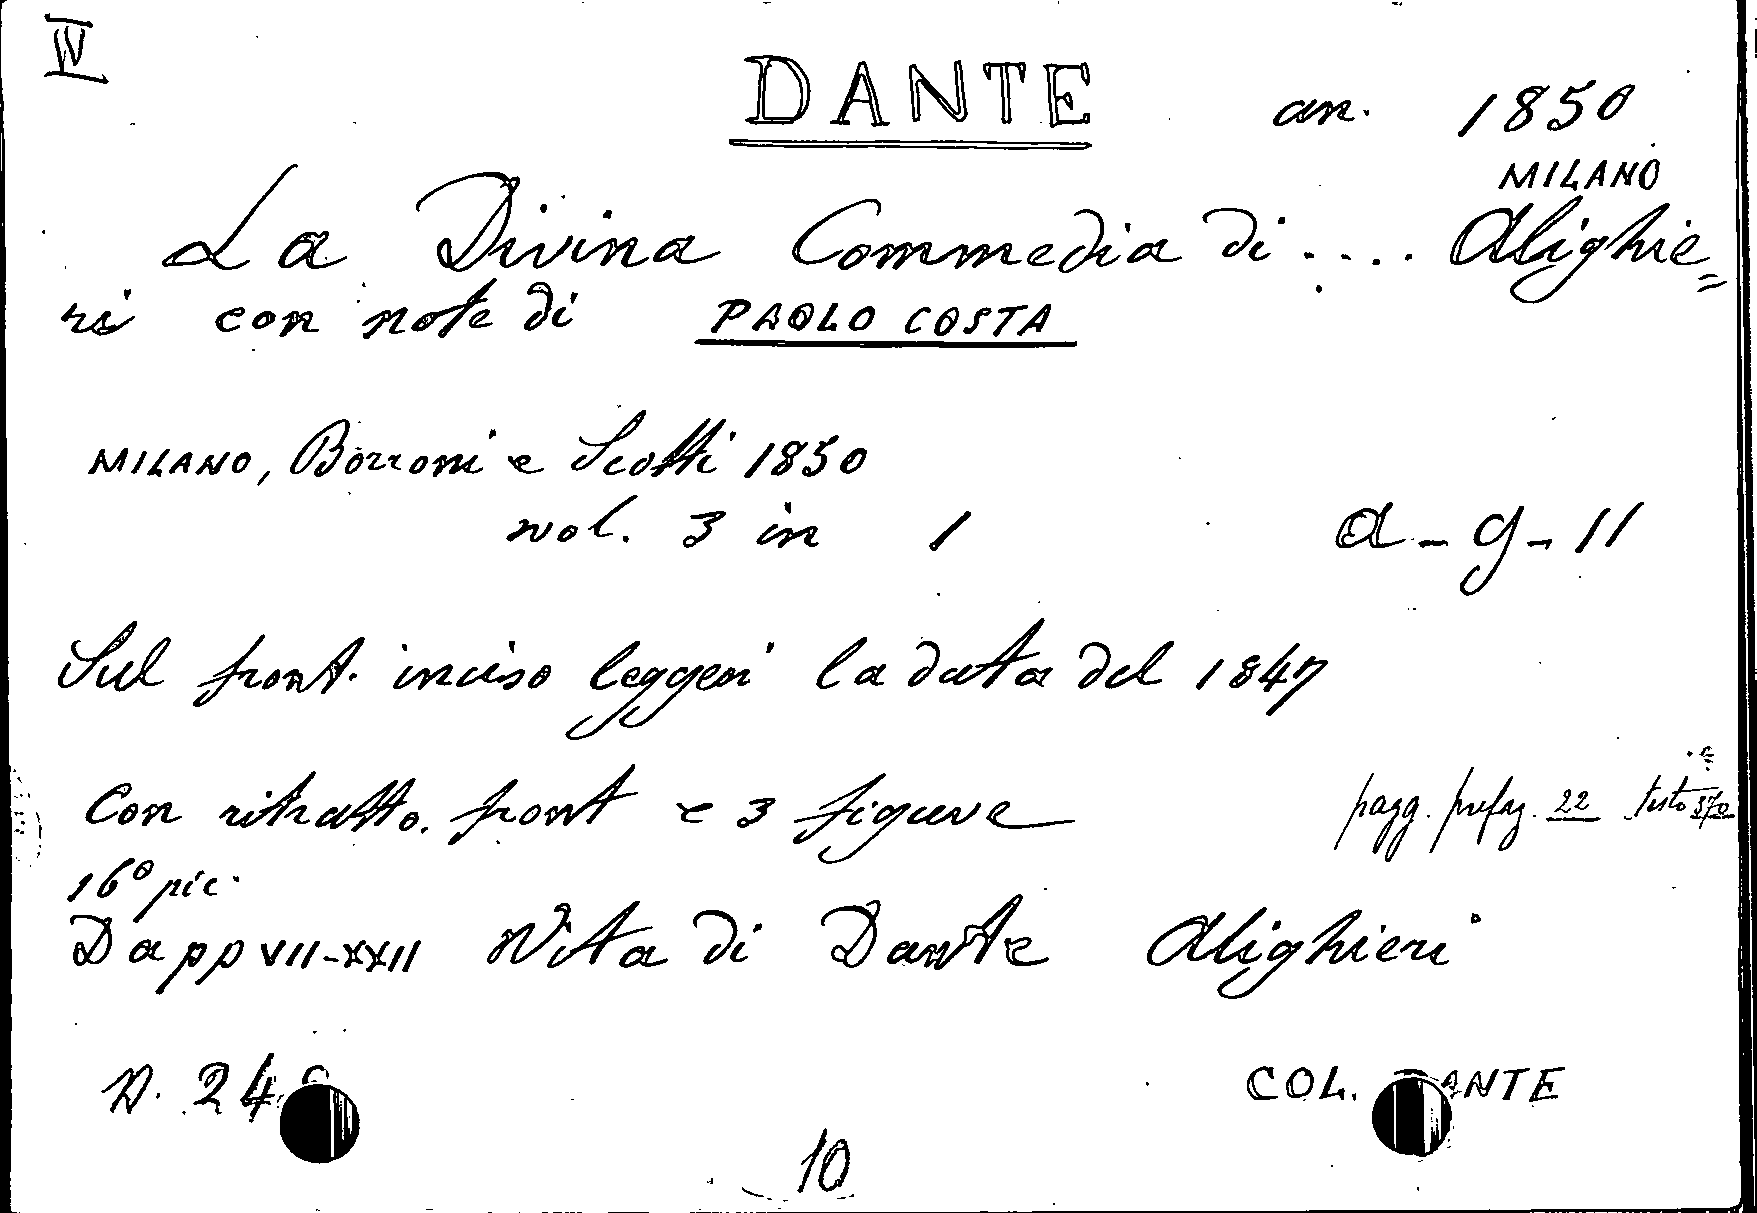 IV
DANTE an. 1850
MILANO
La Divina Commedia di .... Alighie=
ri con note di PAOLO COSTA
MILANO, Borroni e Scotti 1850
vol. 3 in 1 a-g-11
Sul front. inciso leggesi la data del 1847
Con ritratto. front e 3 figure pagg. prefaz. 22 testo
16° pic.
Da pp VII-XXII Vita di Dante Alighieri
N. 24 COL. DANTE
10